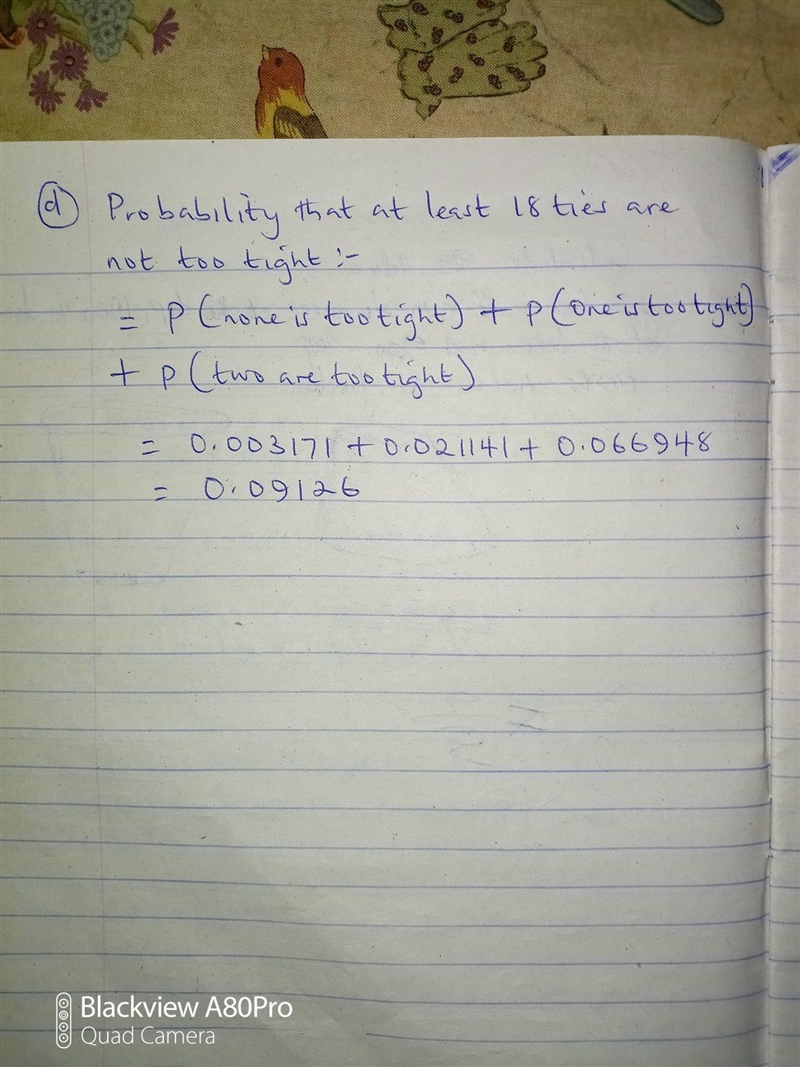 (d) Probability that at least 18 ties are
not too tight :-
= P (none is too tight) + P (One is too tight)
+ P (two are too tight)
= 0.003171 + 0.021141 + 0.066948
= 0.09126
Blackview A80Pro
Quad Camera